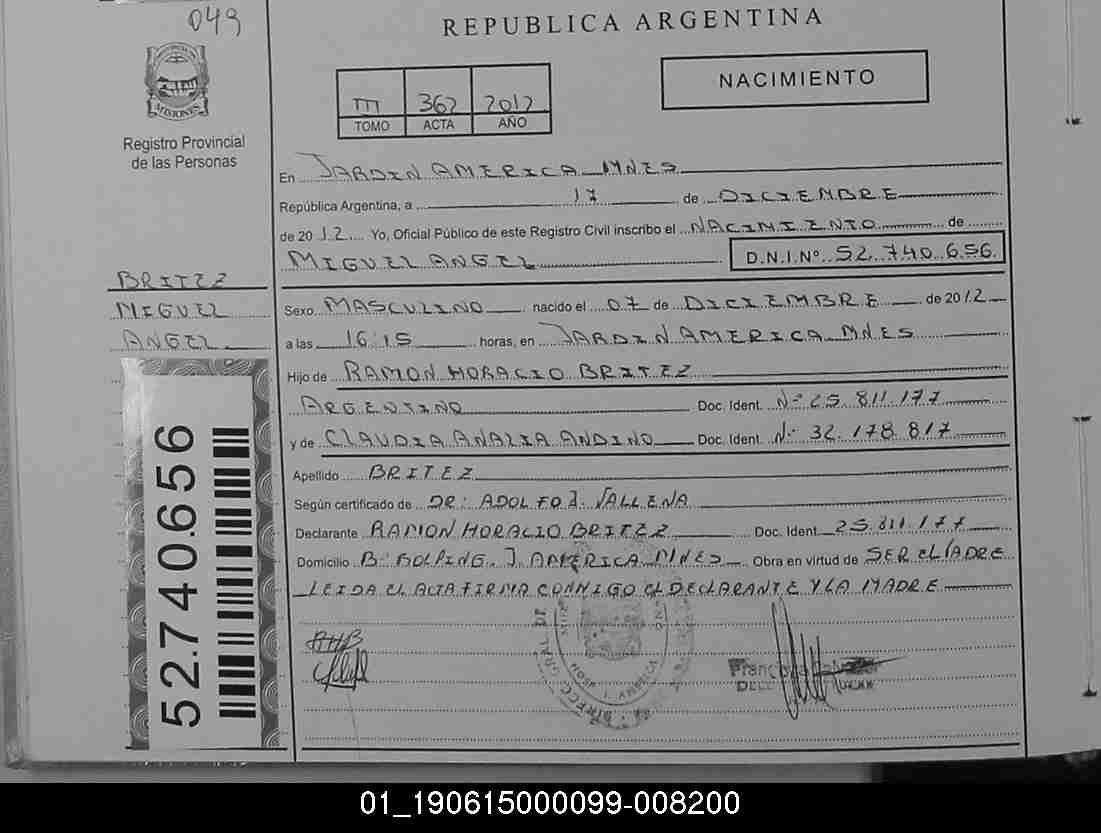 049
REPUBLICA ARGENTINA
MISIONES
Registro Provincial
de las Personas
III 362 2012
TOMO ACTA AÑO
NACIMIENTO
En JARDIN AMERICA MNES
República Argentina, a 17 de DICIEMBRE
de 2012 Yo, Oficial Público de este Registro Civil inscribo el NACIMIENTO de
MIGUEL ANGEL D.N.I.Nº 52.740.656
BRITEZ
MIGUEL
ANGEL
Sexo MASCULINO nacido el 07 de DICIEMBRE de 2012
a las 16:15 horas, en JARDIN AMERICA MNES
Hijo de RAMON HORACIO BRITEZ
ARGENTINO Doc. Ident. Nº 25.811.177
y de CLAUDIA ANALIA ANDINO Doc. Ident. Nº 32.178.817
Apellido BRITEZ
Según certificado de DR: ADOLFO J. VALLENA
Declarante RAMON HORACIO BRITEZ Doc. Ident. 25.811.177
Domicilio Bº KOLPING. J. AMERICA MNES Obra en virtud de SER EL PADRE
LEIDA EL ACTA FIRMA CONMIGO EL DECLARANTE Y LA MADRE
52.740.656
01_190615000099-008200